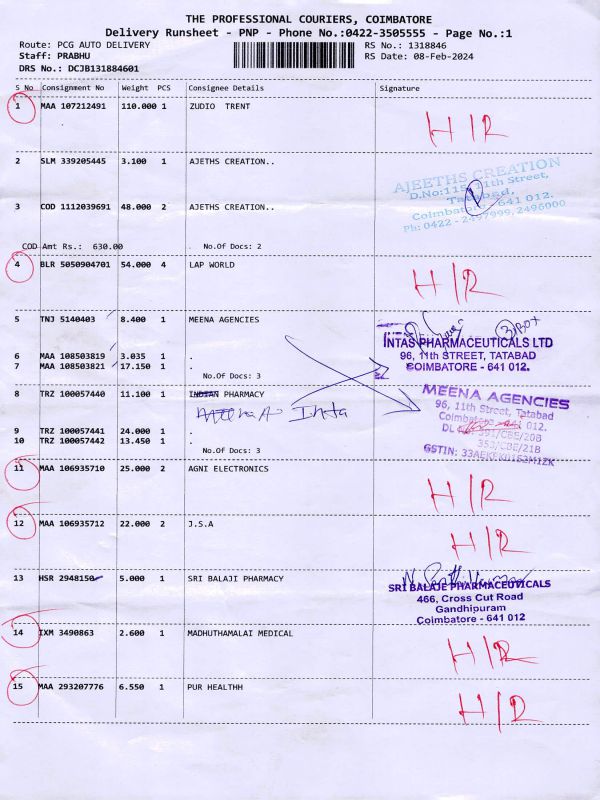 THE PROFESSIONAL COURIERS, COIMBATORE
Delivery Runsheet - PNP - Phone No.:0422-3505555 - Page No.:1
Route: PCG AUTO DELIVERY RS No.: 1318846
Staff: PRABHU RS Date: 08-Feb-2024
DRS No.: DCJB131884601
S No Consignment No Weight PCS Consignee Details Signature
1 MAA 107212491 110.000 1 ZUDIO TRENT
H/R
2 SLM 339205445 3.100 1 AJETHS CREATION..
AJEETHS CREATION
D.No:115, 11th Street,
Tatabad,
Coimbatore - 641 012.
Ph: 0422 - 2497999, 2496000
3 COD 1112039691 48.000 2 AJETHS CREATION..
COD Amt Rs.: 630.00 . No.Of Docs: 2
4 BLR 5050904701 54.000 4 LAP WORLD
H/R
5 TNJ 5140403 8.400 1 MEENA AGENCIES
3 Box
INTAS PHARMACEUTICALS LTD
96, 11th STREET, TATABAD
COIMBATORE - 641 012.
6 MAA 108503819 3.035 1 .
7 MAA 108503821 17.150 1 .
No.Of Docs: 3
8 TRZ 100057440 11.100 1 INDIAN PHARMACY
Meena A. Inta
MEENA AGENCIES
96, 11th Street, Tatabad
Coimbatore 012.
DL 351/CBE/20B
353/CBE/21B
GSTIN:
9 TRZ 100057441 24.000 1 .
10 TRZ 100057442 13.450 1 .
No.Of Docs: 3
11 MAA 106935710 25.000 2 AGNI ELECTRONICS
H/R
12 MAA 106935712 22.000 2 J.S.A
H/R
13 HSR 2948150 5.000 1 SRI BALAJI PHARMACY
SRI BALAJE PHARMACEUTICALS
466, Cross Cut Road
Gandhipuram
Coimbatore - 641 012
14 IXM 3490863 2.600 1 MADHUTHAMALAI MEDICAL
H/R
15 MAA 293207776 6.550 1 PUR HEALTHH
H/R